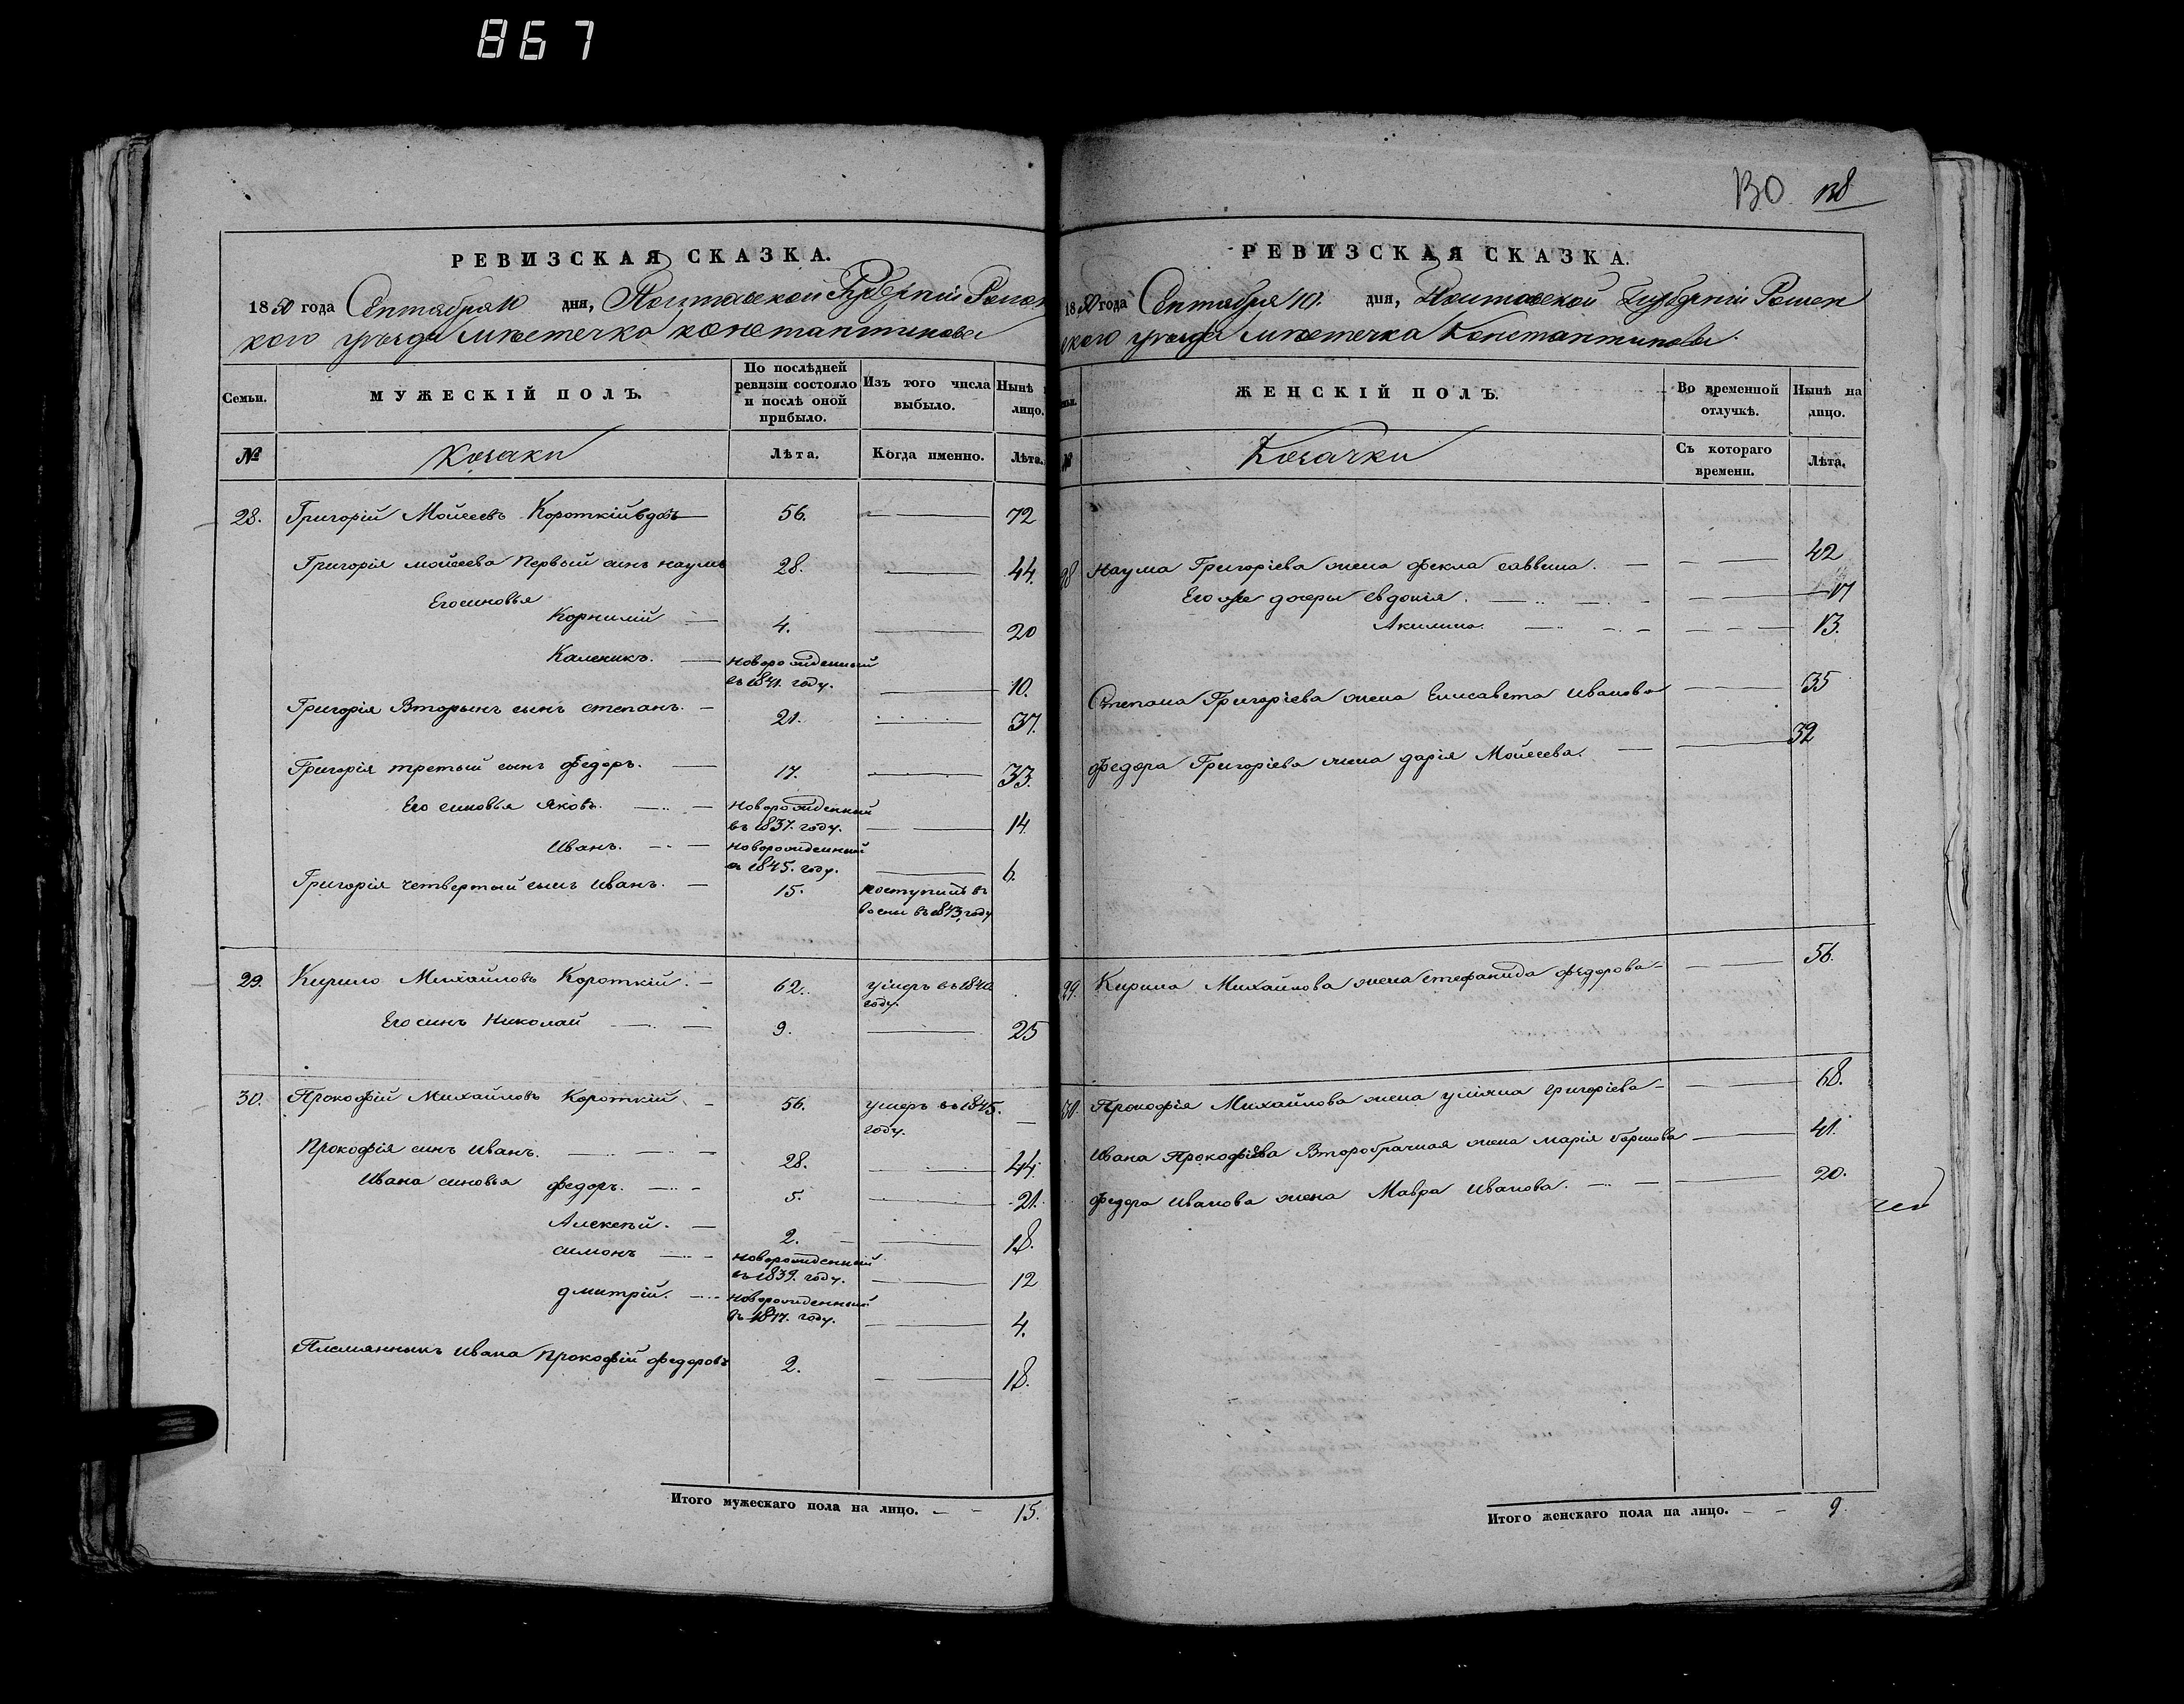 867
130 138
РЕВИЗСКАЯ СКАЗКА.
1850 года Сентября 10 дня, Полтавской Губерній Ромен
кого уѣзда мѣстечка константинова
Семьи. МУЖЕСКІЙ ПОЛЪ. По послѣдней ревизіи состояло и послѣ оной прибыло. Изъ того числа выбыло. Нынѣ на лицо.
№ Козаки Лѣта. Когда именно. Лѣта.
28. Григорій Мойсеевъ Короткій вдовъ 56. 72
Григорія мойсеева Первый синъ наумъ 28. 44.
Его синовья
Корнилій 4. 20
Каленикъ. новорожденный въ 1841. году. 10.
Григорія Вторынъ сынъ степанъ. 21. 37.
Григорія третый сынъ федоръ. 17. 33.
Его синовья Яковъ. новорожденный въ 1837. году. 14
Иванъ. новорожденный въ 1845. году. 6.
Григорія четвертый сынъ иванъ. 15. поступилъ въ 1843, году
29. Кирило Михайловъ Короткій. 62. умеръ въ 1840 году.
Его синъ Николай 9. 25
30. Прокофій Михайловъ Короткій 56. умеръ въ 1845. году.
Прокофія синъ иванъ. 28. 44.
Ивана синовья федоръ. 5. 21.
Алексѣй. 2. 18.
симонъ новорожденный въ 1839. году. 12
дмитрій. новорожденный въ 1847. году. 4.
Племянныкъ ивана прокофій федоровъ 2. 18.
Итого мужескаго пола на лицо. 15.
РЕВИЗСКАЯ СКАЗКА.
1850 года Сентября 10. дня, Полтавской Губерній Ромен
ского уѣзда мѣстечка Константинова.
ЖЕНСКІЙ ПОЛЪ. Во временной отлучкѣ. Нынѣ на лицо.
№ Козачки Съ котораго времени. Лѣта.
28 Наума Григоріева жена фекла саввина. 42
Его же дочеры евдокія. 17
Акилина. 13.
Степана Григоріева жена Елисавета иванова 35
федора Григоріева жена дарія Мойсеева. 32
29. Кирила Михайлова жена стефанида федорова 56.
30. Прокофія Михайлова жена уліяна григоріева 68.
Ивана Прокофіева Второбрачная жена марія 41.
федора иванова жена Мавра иванова. 20.
Итого женскаго пола на лицо. 9.